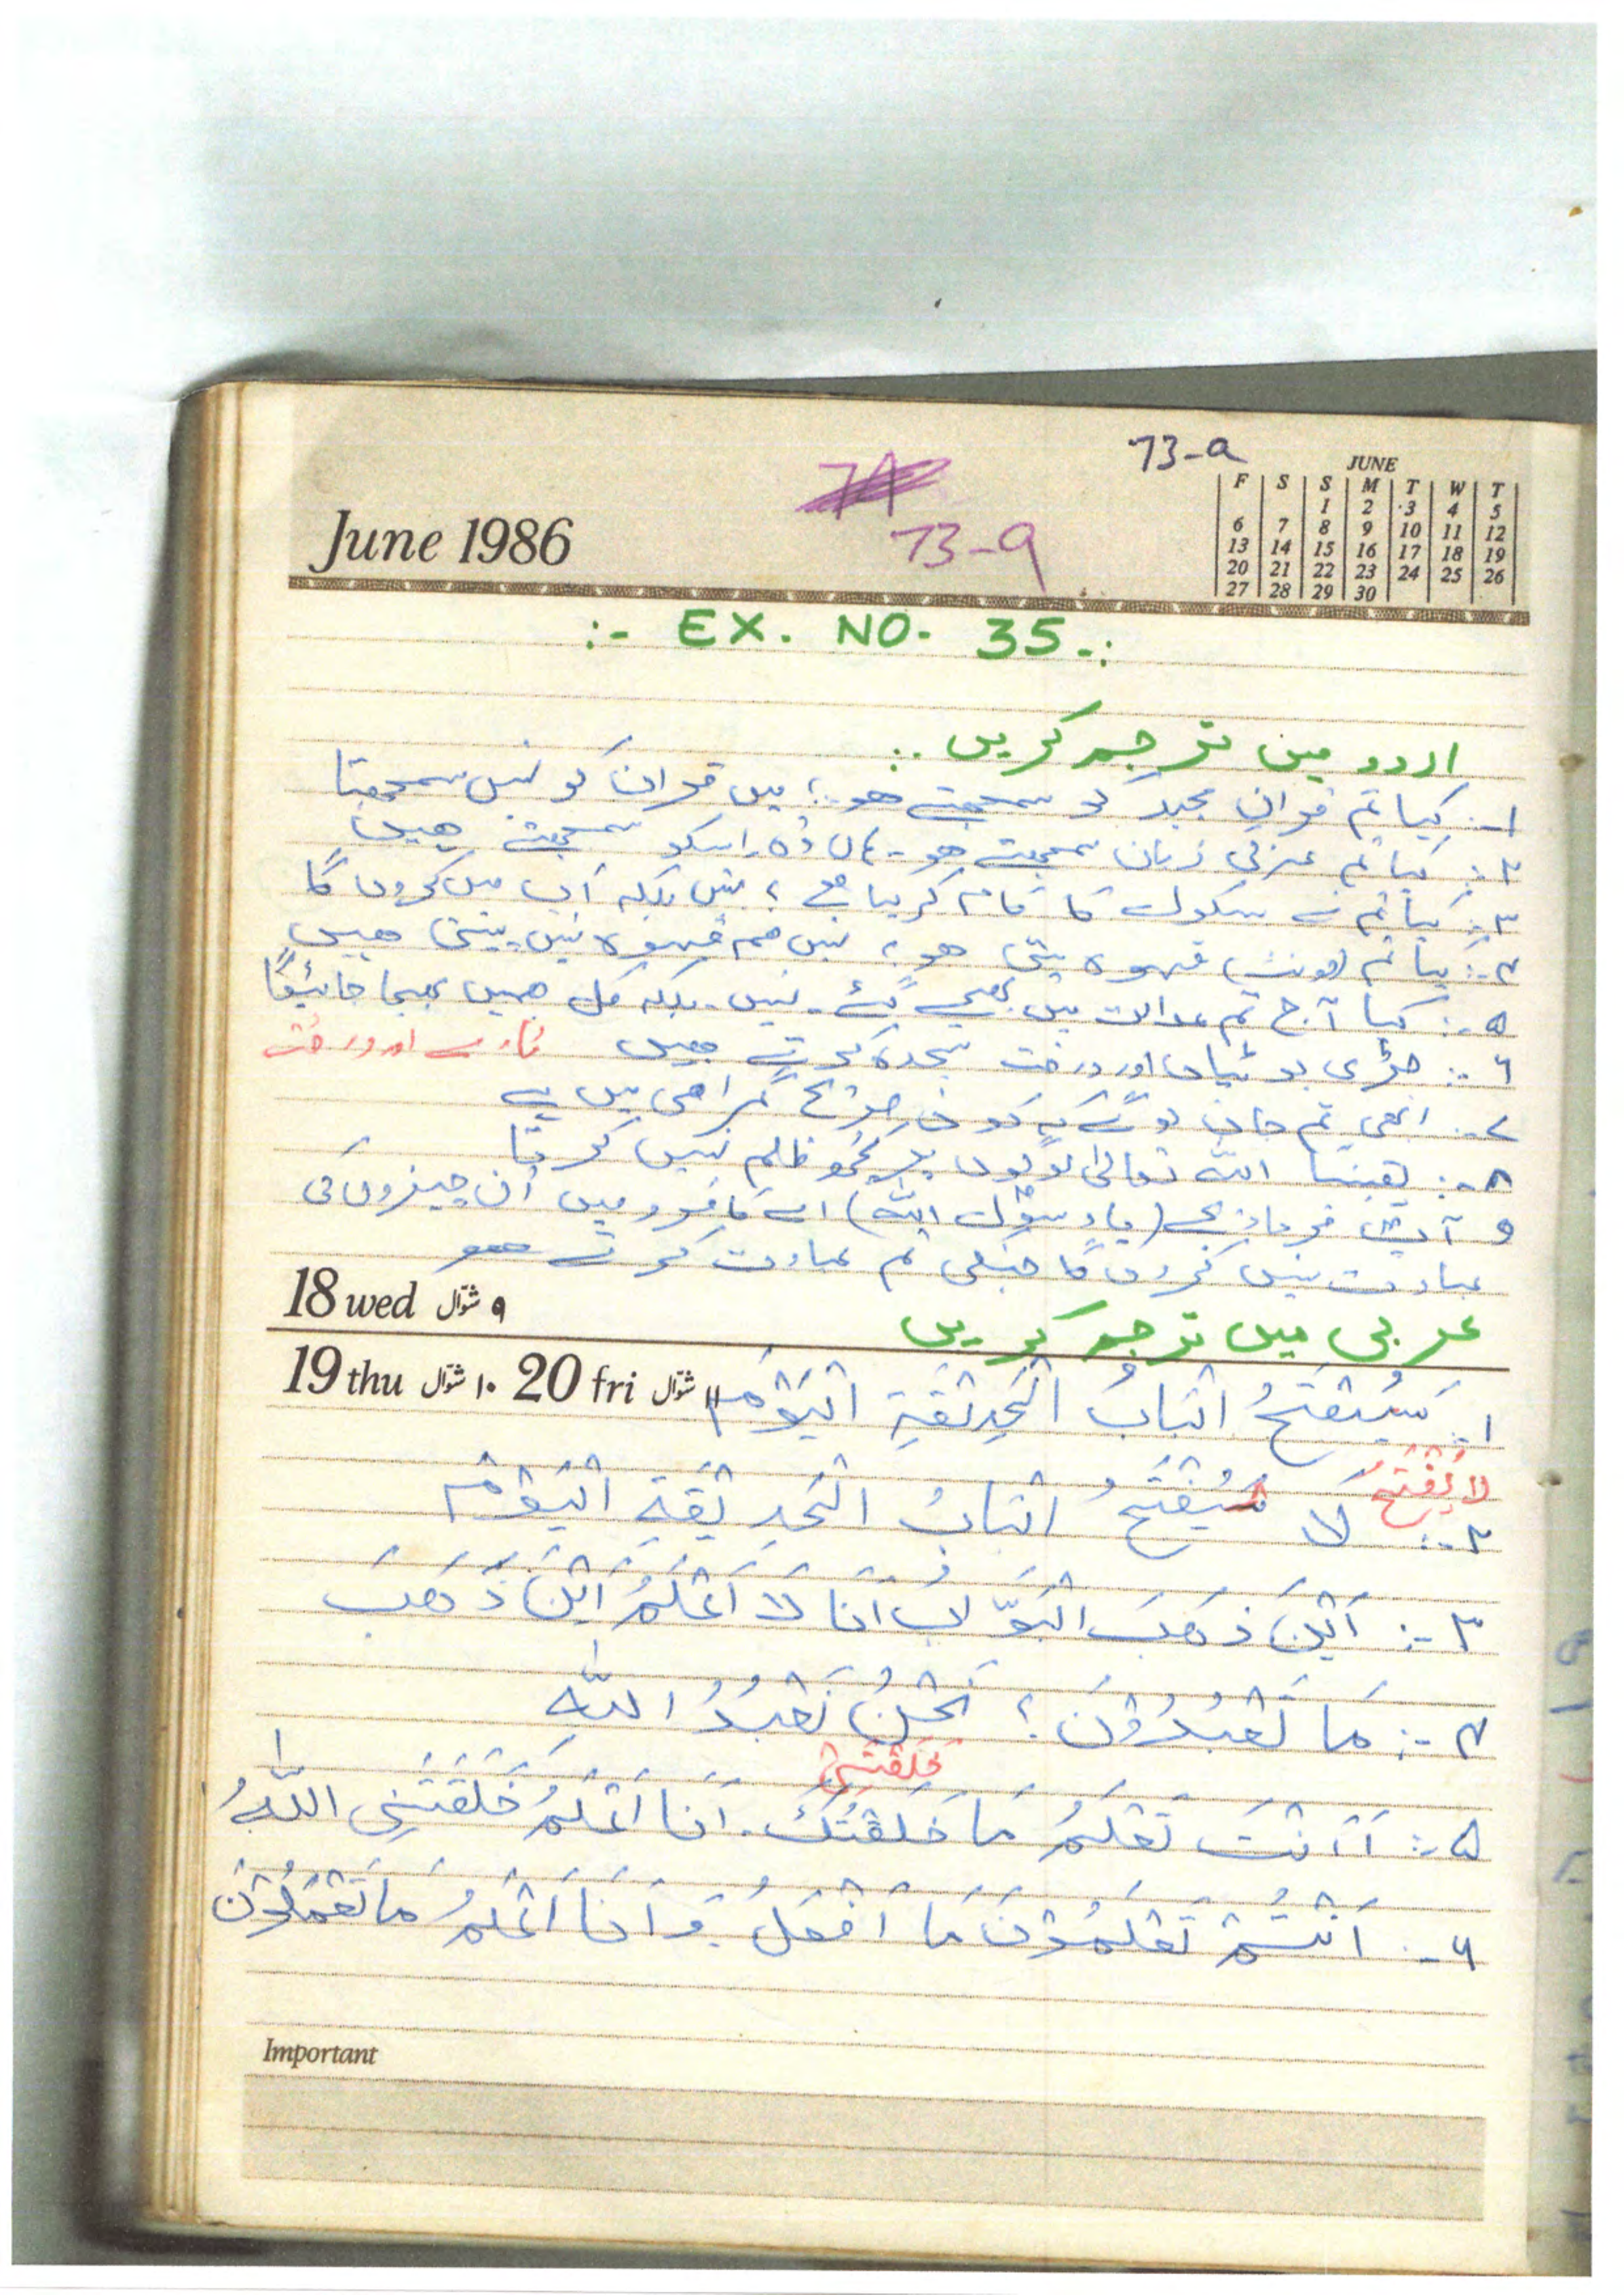 73-a
74
73-a
June 1986
JUNE
F S S M T W T
1 2 3 4 5
6 7 8 9 10 11 12
13 14 15 16 17 18 19
20 21 22 23 24 25 26
27 28 29 30
:- EX. NO. 35 -:
اردو میں ترجمہ کریں :.
۱-: کیا تم قران مجید کو سمجھتے ھو؟ میں قران کو نہیں سمجھتا
۲-: کیا تم عربی زبان سمجھتے ھو - ہاں وہ اسکو سمجھتے ھیں
۳-: کیا تم نے سکول کا کام کر لیا ہے؟ نہیں بلکہ اب میں کروں گا
۴-: کیا تم (مونث) قہوہ پیتی ھو؟ نہیں ہم قہوہ نہیں پیتی ھیں
۵-: کیا آج تم عدالت میں بھیجے گئے - نہیں - بلکہ کل ہمیں بھیجا جائیگا
۶-: جڑی بوٹیاں اور درخت سجدہ کرتے ہیں تارے اور درخت
۷-: ابھی تم جان لو گے کہ کون صریح گمراھی میں ہے
۸-: یقیناً اللہ تعالیٰ لوگوں پر کچھ ظلم نہیں کرتا
۹ آپ فرمادیجیے (یا رسول اللہ) اے کافرو میں اُن چیزوں کی
عبادت نہیں کروں گا جنکی تم عبادت کرتے ھو
18 wed ۹ شوّال
عربی میں ترجمہ کریں
19 thu ۱۰ شوّال 20 fri ۱۱ شوّال
۱-: سَيُفْتَحُ الْبَابُ الْحَدِيْقَةِ الْيَوْمَ
لَا يُفْتَحُ
۲-: لَا سَيُفْتَحُ الْبَابُ الْحَدِيْقَةِ الْيَوْمَ
۳-: اَيْنَ ذَهَبَ الْبَوَّابُ اَنَا لَا اَعْلَمُ اَيْنَ ذَهَبَ
۴-: مَا تَعْبُدُوْنَ؟ نَحْنُ نَعْبُدُ اللّٰهِ
خَلَقَتْنِيْ
۵-: أَ اَنْتَ تَعْلَمُ مَا خَلَقْتُكَ. اَنَا اَعْلَمُ خَلَقَتْنِي اللّٰهُ
۶-: اَنْتُمْ تَعْلَمُوْنَ مَا اَفْعَلُ وَ اَنَا اَعْلَمُ مَا تَعْمَلُوْنَ
Important